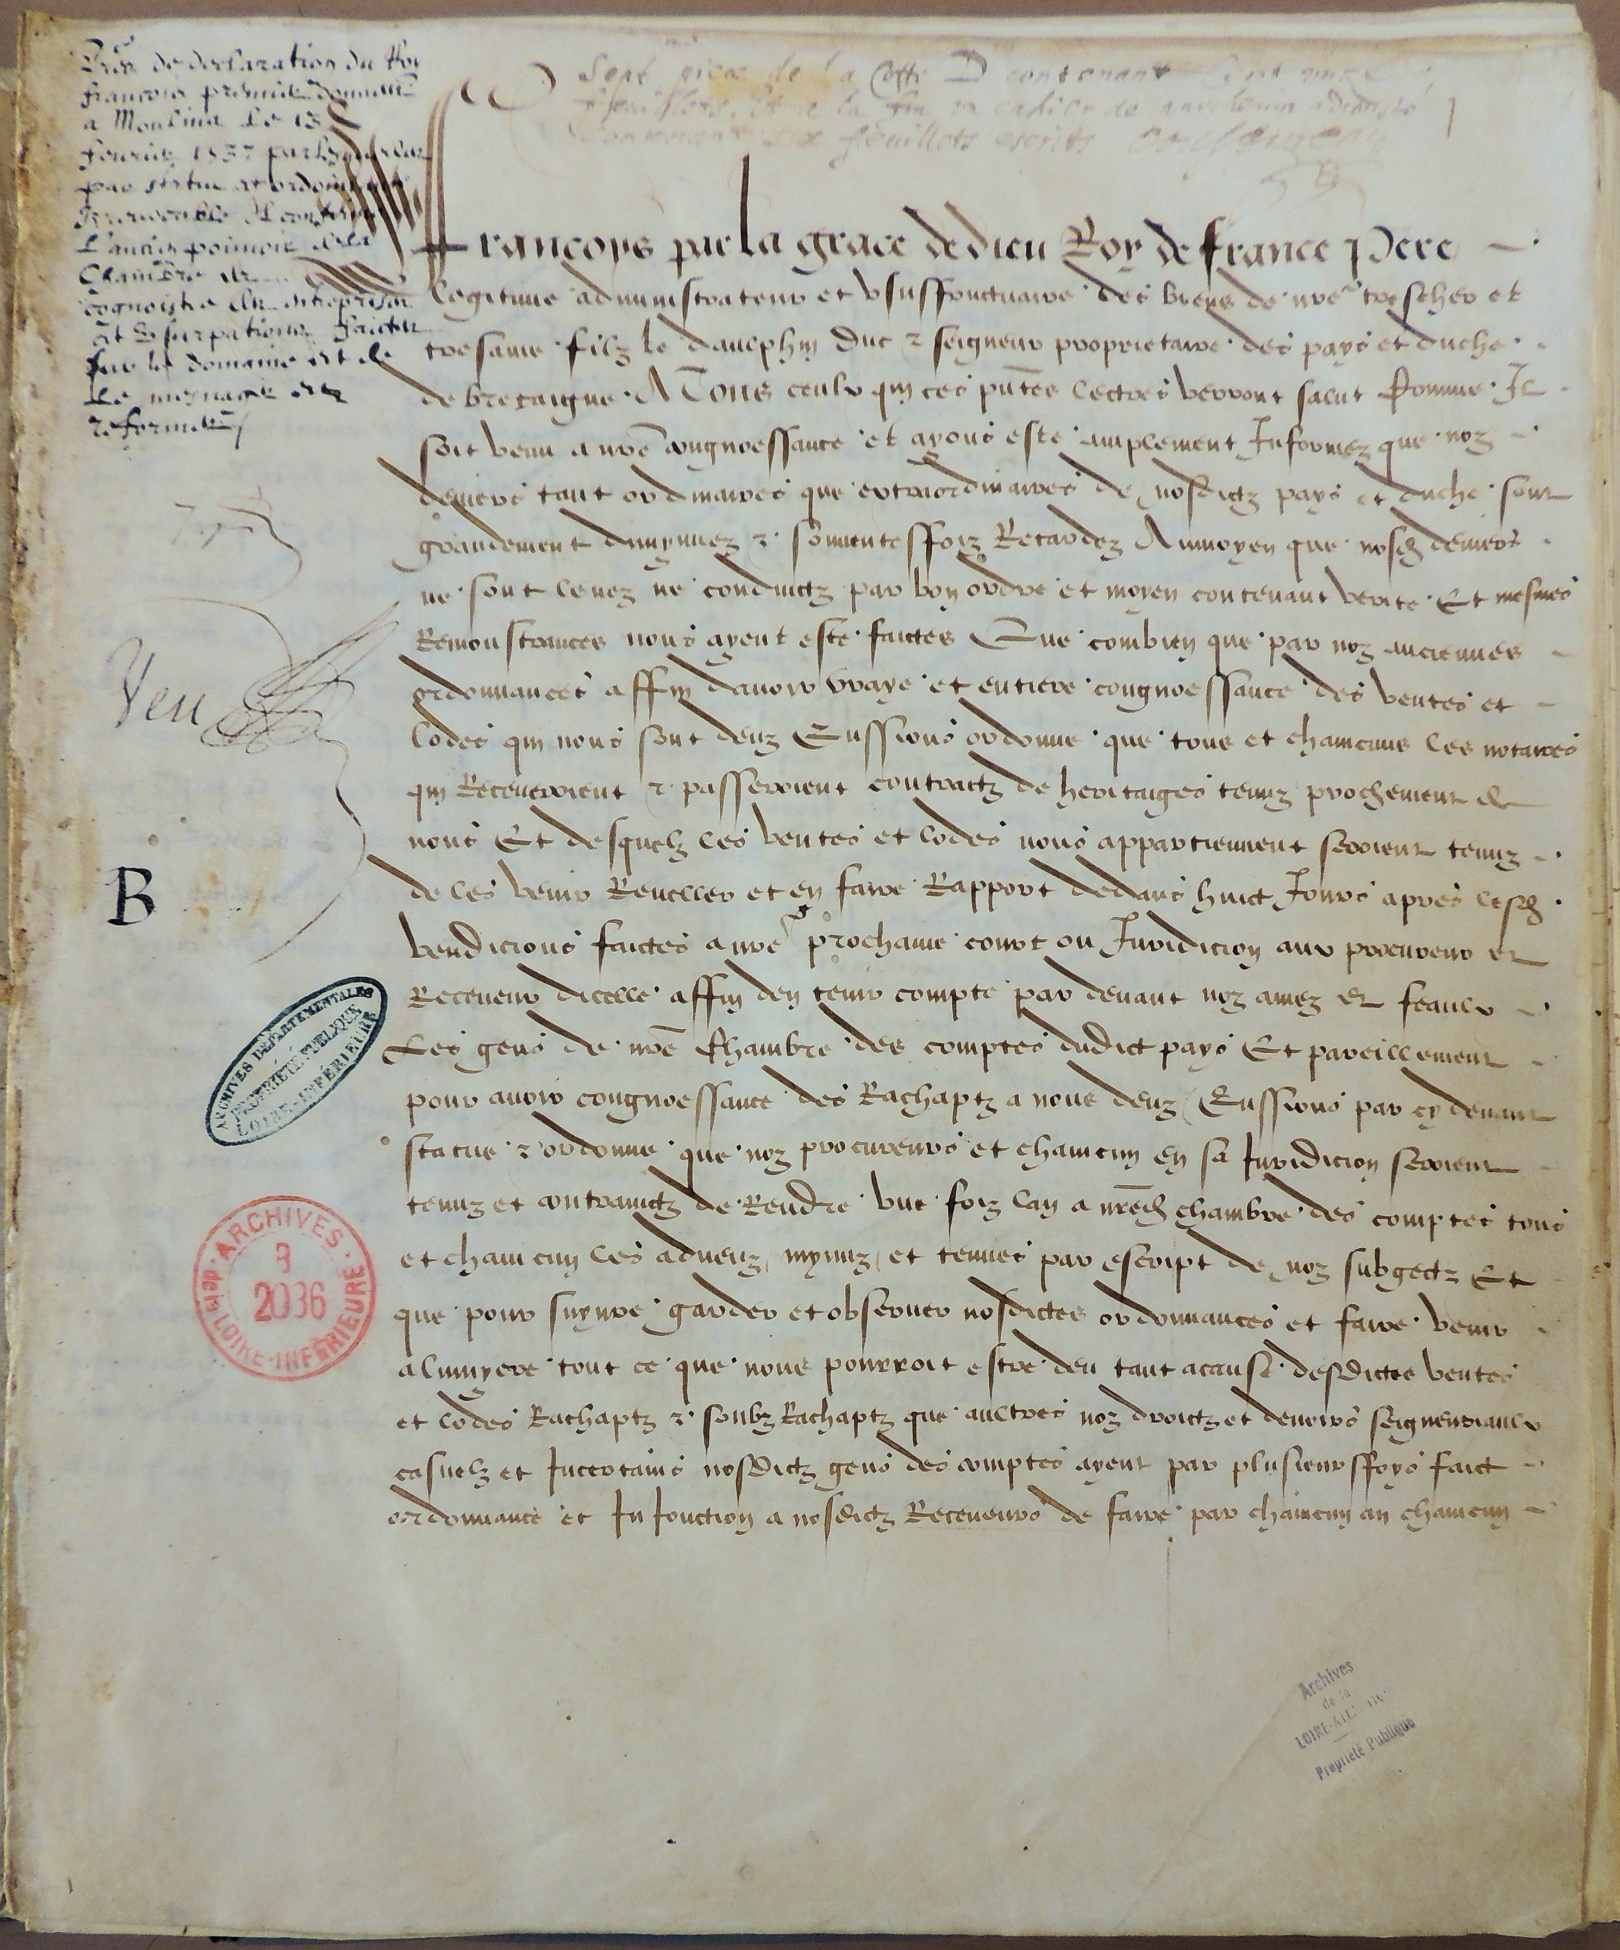 francois premier donnee
a Moulins le 13
feurier 1537 par lesquelles
par statut et ordonnance
Irreuocable Il confirme
L'ancien pouuoir de la
Chambre de
cognoistre des entreprises
et Usurpations faictes
sur le domaine et de
Le mesnager et
reformer
Sept pieces de la Cotte D contenant
feuillets escrits
1
Francoys par la grace de dieu Roy de france Pere
legitime administrateur et vsuffructuaire des biens de nre trescher et
tresame filz le daulphin Duc & seigneur proprietaire des pays et duche
de bretaigne A Tous ceulx qui ces pntes lectres verront salut Comme Il
soit venu a nre congnoessance et ayons este amplement Informez que noz
deniers tant ordinaires que extraordinaires de nosdictz pays et duche sont
grandement dimynuez & souuentesfoiz Retardez Aumoyen que nosd deniers
ne sont leuez ne conduictz par bon ordre et moyen contenant verite Et mesmes
Remonstrances nous ayent este faictes Que combien que par noz anciennes
ordonnances affin dauoir vraye et entiere congnoessance des ventes et
lodes qui nous sont deuz Eussions ordonne que tous et chaincuns les notaires
qui Receueroient & passeroient contractz de heritaiges tenuz prochement de
nous Et desquelz les ventes et lodes nous appartiennent seroient tenuz
de les venir Reueller et en faire Rapport dedans huict Jours apres lesd
vendicions faictes a nre prochaine court ou Juridicion aux procureur et
Receueur dicelle affin den tenir compte par deuant noz amez et feaulx
Les gens de nre Chambre des comptes dudict pays Et pareillement
pour auoir congnoessance des Rachaptz a nous deuz Eussions par cy deuant
statue & ordonne que noz procureurs et chaincun en sa Juridicion seroient
tenuz et contrainctz de Rendre vne foiz lan a nred chambre des comptes tous
et chaincun les adueuz mynuz et tenues par escript de noz subgectz Et
que pour suyure garder et obseruer nosdictes ordonnances et faire venir
alumyere tout ce que nous pourroit estre deu tant acause desdictes ventes
et lodes Rachaptz & soubz Rachaptz que aultres noz droictz et deuoirs seigneuriaulx
casuelz et Incertains nosdictz gens des comptes ayent par plusieursfoys faict
ordonnance et InJonction a nosdictz Receueurs de faire par chaincun an chaincun
Veu
B
ARCHIVES DÉPARTEMENTALES
PROPRIÉTÉ PUBLIQUE
LOIRE-INFÉRIEURE
ARCHIVES
9
2036
de la LOIRE-INFÉRIEURE
Archives
de la
LOIRE-ATLANTIQUE
Propriété Publique